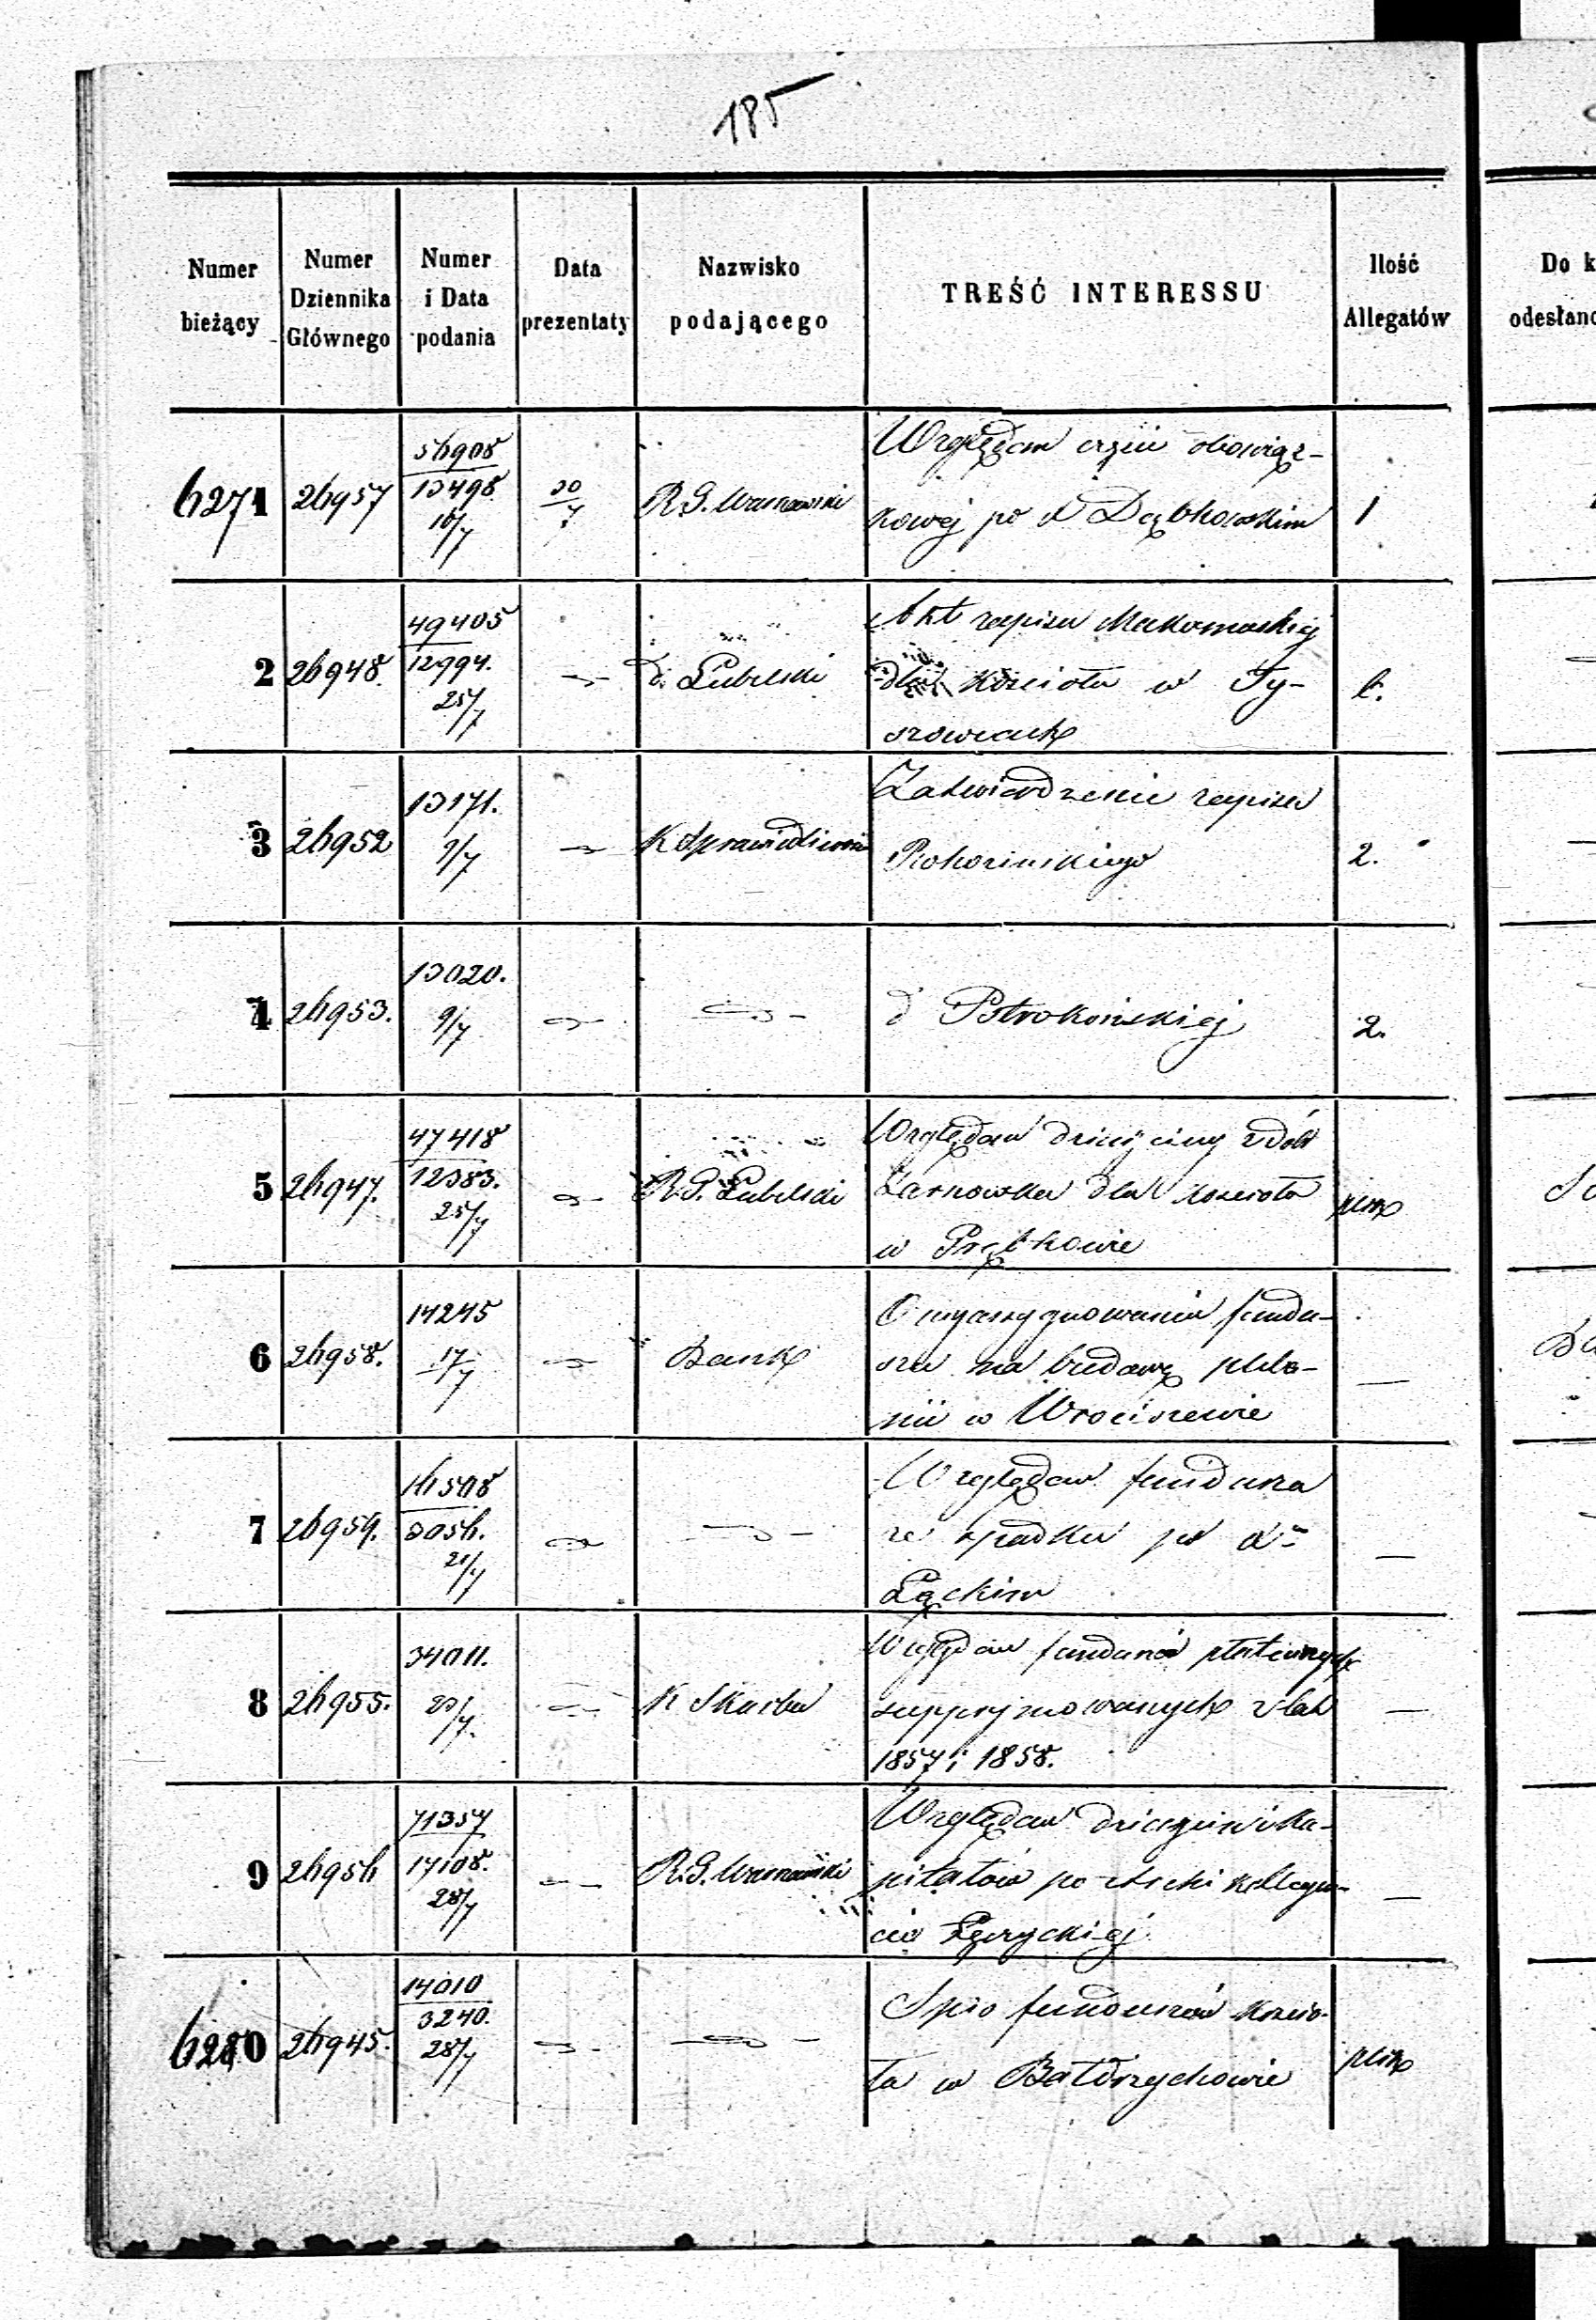 185
Numer bieżący
Numer Dziennika Głównego
Numer i Data podania
Data prezentaty
Nazwisko podającego
TREŚĆ INTERESSU
Ilość Allegatów
Do k
odesłano
6271 26957 56908 13498 16/7 30/7 R. G. Warszawski Względem części obowiąz-
kowej po X Dąbkowskim 1
2 26948. 49405 12994. 25/7 d. Lubelski Akt zapisu Makomaskiej
dla kościoła w Ty-
szowcach 6.
3 26952 13171. 9/7 K Sprawiedliwości Zatwierdzenie zapisu
2.
4 26953. 13020. 9/7 d Pstrokońskiej 2.
5 26947. 47418 12383. 25/7 R. G. Lubelski Względem dziesięciny z dóbr
Żarnówka dla kościoła
w plik
6 26958. 14245 17/7 Bank O wyassygnowanie fundu-
szu na budowę pleba-
nii w Wrociszewie —
7 26959. 16508 3056. 21/7 Względem fundusza
ze spadku po X
Łąckim —
8 26955. 34011. 23/7 K Skarbu Względem funduszów
suppressowanych z lat
1857 i 1858. —
9 26956 71357 17108. 28/7 R. G. Warszawski Względem dziesięcin i ka-
pitałów po
Łęczyckiej —
6280 26945. 14010 3240. 28/7 Spis funduszów kościo-
ła w Bałdrzychowie plik